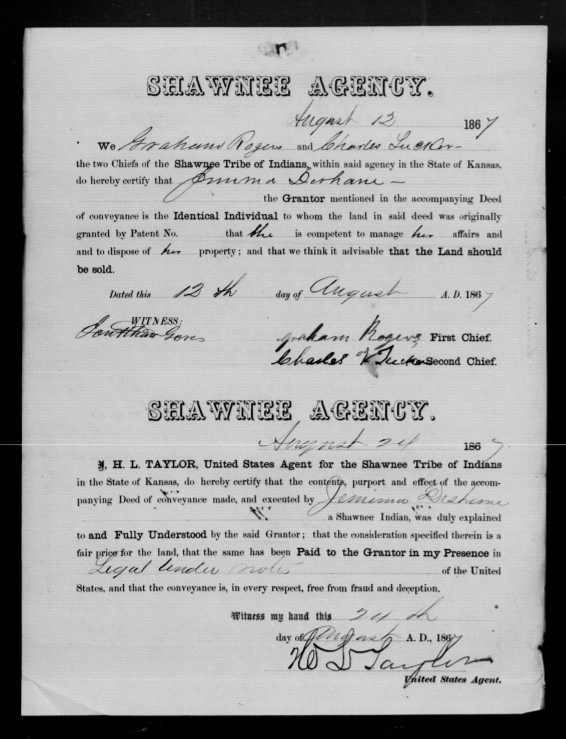 SHAWNEE AGENCY.
August 12 1867
We Graham Rogers and Charles Tucker
the two Chiefs of the Shawnee Tribe of Indians, within said agency in the State of Kansas,
do hereby certify that
the Grantor mentioned in the accompanying Deed
of conveyance is the Identical Individual to whom the land in said deed was originally
granted by Patent No. that she is competent to manage her affairs and
and to dispose of her property; and that we think it advisable that the Land should
be sold.
Dated this 12 th day of August A. D. 1867
WITNESS:
graham Rogers First Chief.
Charles Tucker Second Chief.
SHAWNEE AGENCY.
August 24 1867
I, H. L. TAYLOR, United States Agent for the Shawnee Tribe of Indians
in the State of Kansas, do hereby certify that the contents, purport and effect of the accom-
panying Deed of conveyance made, and executed by Jemima
a Shawnee Indian, was duly explained
to and Fully Understood by the said Grantor; that the consideration specified therein is a
fair price for the land, that the same has been Paid to the Grantor in my Presence in
Legal tender notes of the United
States, and that the conveyance is, in every respect, free from fraud and deception.
Witness my hand this 24 th
day of August A. D., 1867
H L Taylor
United States Agent.